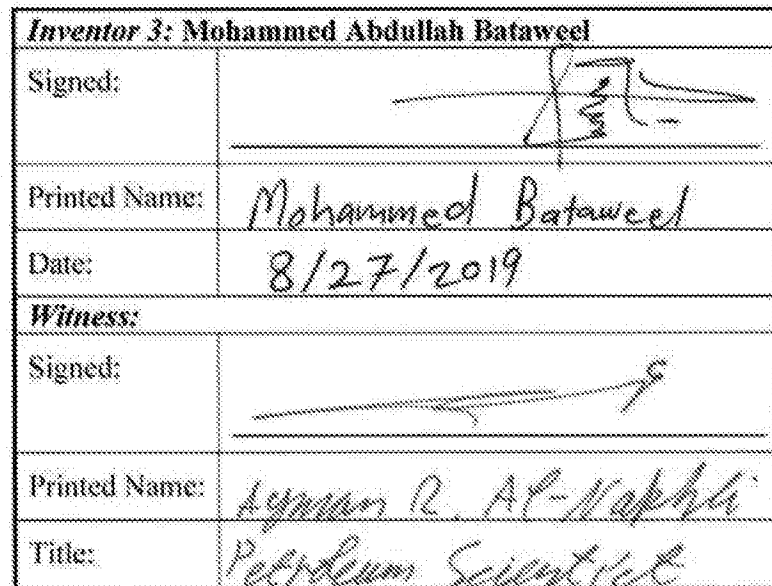 Inventor 3: Mohammed Abdullah Bataweel
Signed:
Printed Name: Mohammed Bataweel
Date: 8/27/2019
Witness:
Signed:
Printed Name: Ayman R. Al-Nakhli
Title: Petroleum Scientist